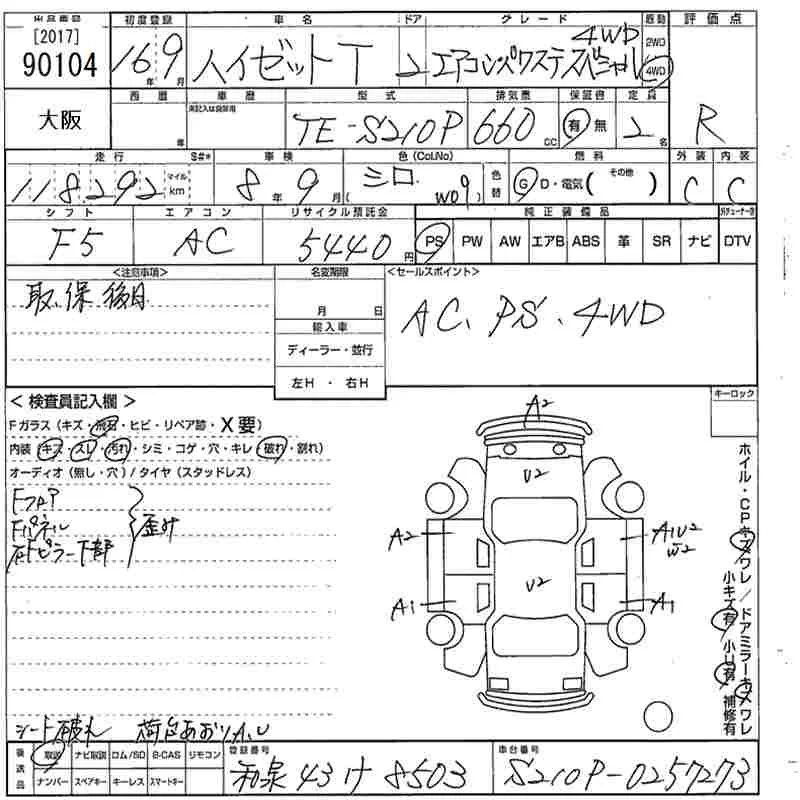 出品番号 初度登録 車名 ドア グレード 駆動 評価点
[2017] 90104 16年 9月 ハイゼットT 2 エアコンパワステスペシャル 4WD 2WD 4WD R
大阪 西暦 年 車歴 未記入は自家用 型式 排気量 保証書 定員
TE-S210P 660cc 有・無 2名
走行 S#* 車検 色(Col.No) 色替 燃料 外装 内装
118292 マイル km 8年 9月 シロ (W09) G・D・電気( その他 ) C C
シフト エアコン リサイクル預託金 純正装備品
F5 AC 5440円 PS PW AW エアB ABS 革 SR ナビ DTV
<注意事項> 名変期限 <セールスポイント>
取、保 後日 月 日 AC、PS、4WD
輸入車
ディーラー・並行
左H・右H
<検査員記入欄> キーロック
Fガラス(キズ・飛石・ヒビ・リペア跡・X要)
内装(キズ・スレ・汚れ・シミ・コゲ・穴・キレ・破れ・割れ)
オーディオ(無し・穴)/タイヤ(スタッドレス)
Fフロア
Fパネル 歪み
右Fピラー下部
A2
U2
A2 A1U2
W2
U2
A1 A1
ホイル・CPキズワレ/ドアミラーキズワレ
小キズ有 小U有 補修有
シート破れ 荷台あおりA、U
後送品 取説 ナビ取説 ロム/SD B-CAS リモコン 登録番号 車台番号
ナンバー スペアキー キーレス スマートキー 和泉 43 け 8503 S210P-0257273